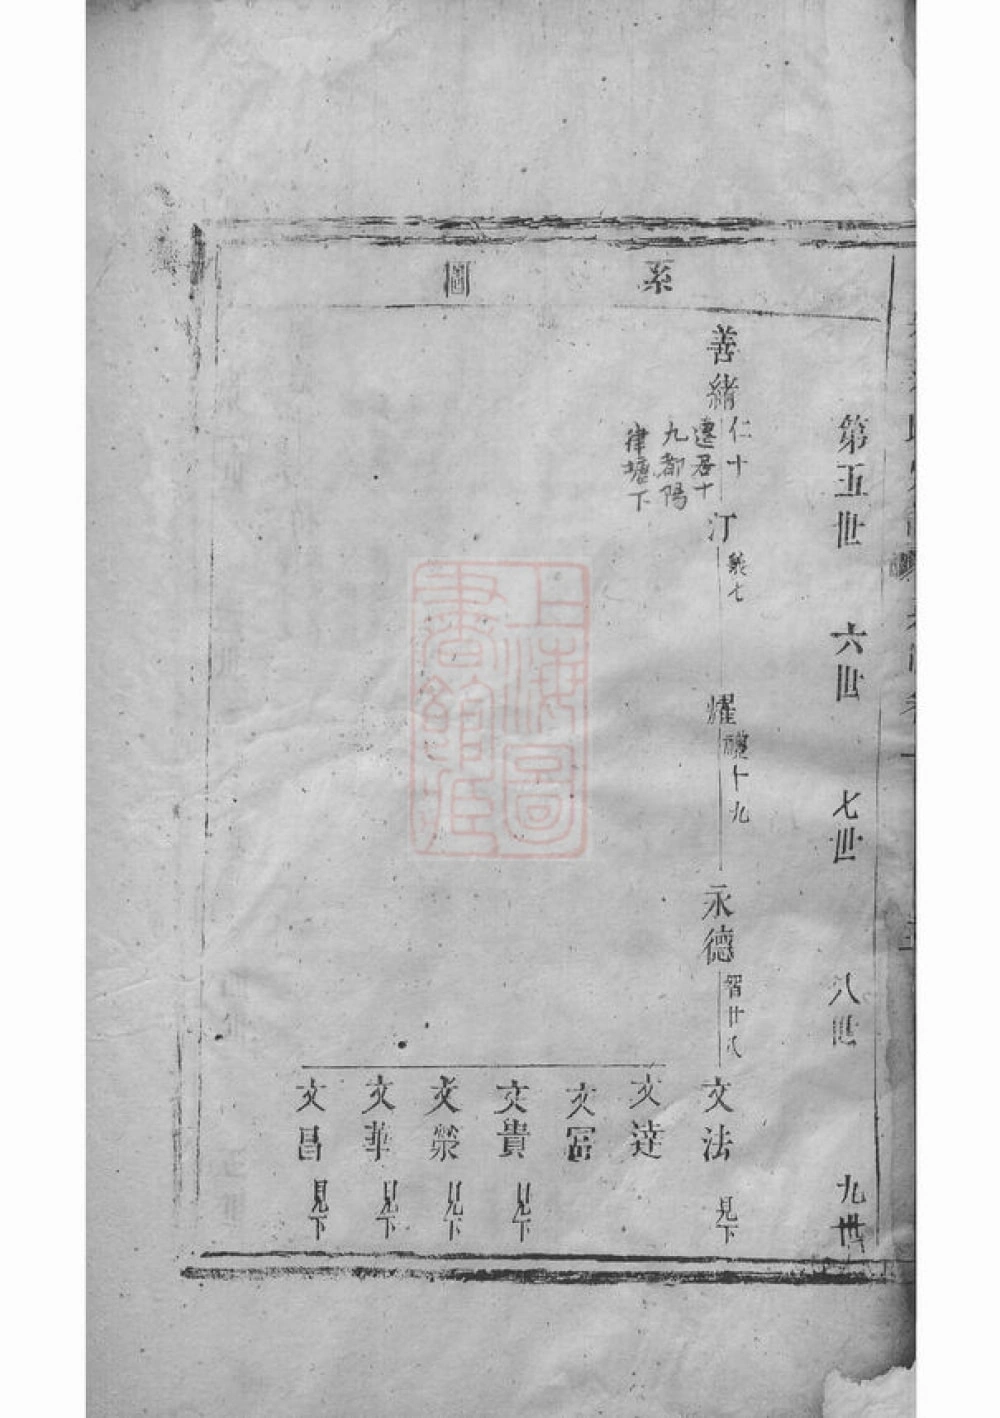 系圖
第五世 六世 七世 八世 九世
善緒 仁十 遷居十九都陽律塘下
汀 義七
耀 禮十九
永德 智廿八
文法 見下
文達
文富
文貴 見下
文榮 見下
文華 見下
文昌 見下
上海圖書館藏